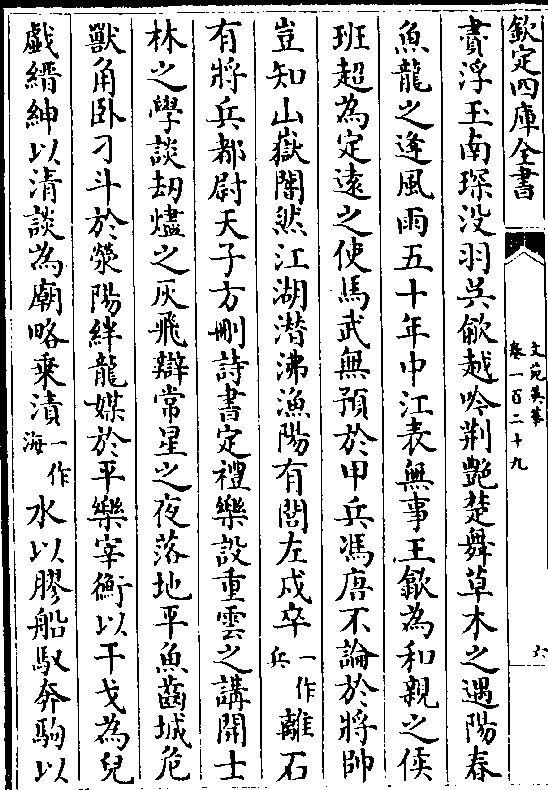 欽定四庫全書
文苑英華
卷一百二十九
六
賮浮玉南琛没羽吳歈越吟荆艶楚舞草木之遇陽春
魚龍之逢風雨五十年中江表無事王歙為和親之侯
班超為定遠之使馬武無預於甲兵馮唐不論於將帥
豈知山嶽闇然江湖潜沸漁陽有閭左戍卒一作兵離石
有將兵都尉天子方刪詩書定禮樂設重雲之講開士
林之學談刼燼之灰飛辯常星之夜落地平魚齒城危
獸角卧刁斗於滎陽絆龍媒於平樂宰衡以干戈為兒
戯縉紳以清談為廟略乗漬一作海水以膠船馭奔駒以